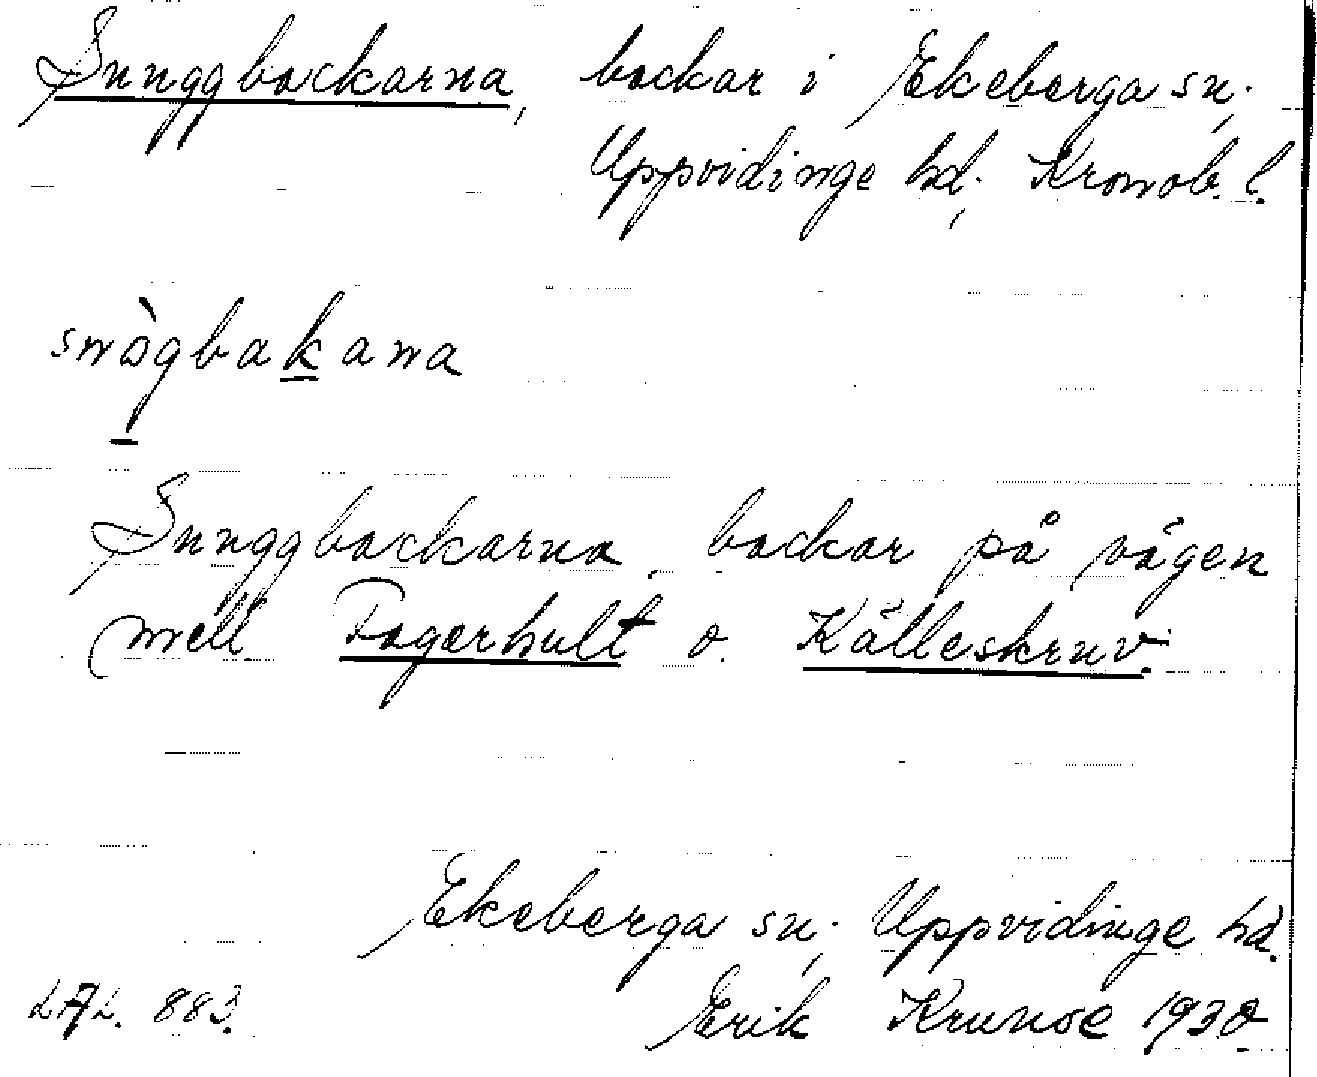 Snuggbackarna, backar i Ekeberga sn;
Uppvidinge hd; Kronob. l.
snògbakana
Snuggbackarna, backar på vägen
mell. Fagerhult o. Källeskruv.
Ekeberga sn; Uppvidinge hd.
LAL. 883. Erik Krunse 1930